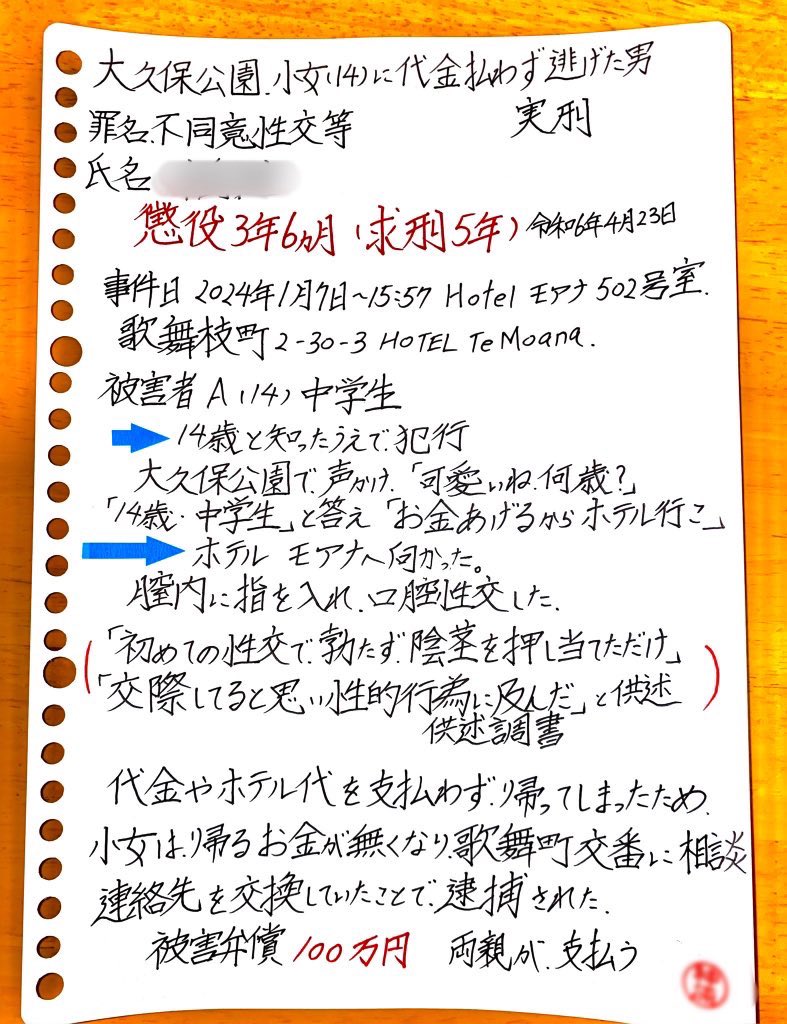 大久保公園.小女(14)に代金払わず逃げた男
罪名.不同意性交等 実刑
氏名
懲役3年6ヵ月(求刑5年)令和6年4月23日
事件日 2024年1月7日〜15:57 Hotel モアナ 502号室.
歌舞枝町 2-30-3 HOTEL Te Moana.
被害者 A(14) 中学生
14歳と知ったうえで.犯行
大久保公園で.声かけ.「可愛いね.何歳?」
「14歳.中学生」と答え「お金あげるからホテル行こ」
ホテル モアナへ向かった。
膣内に指を入れ.口腔性交した.
「初めての性交で.勃たず.陰茎を押し当てただけ」
「交際してると思い性的行為に及んだ」と供述
供述調書
代金やホテル代を支払わず.帰ってしまったため.
小女は.帰るお金が無くなり.歌舞町交番に相談
連絡先を交換していたことで.逮捕された.
被害弁償 100万円 両親が.支払う